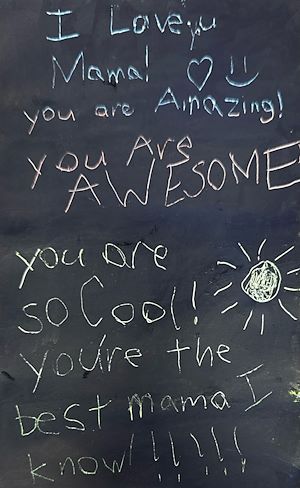 I Love you
Mama! ♡ :)
you are Amazing!
you Are
AWESOME
you are
so Cool!
you're the
best mama I
know!!!!!!